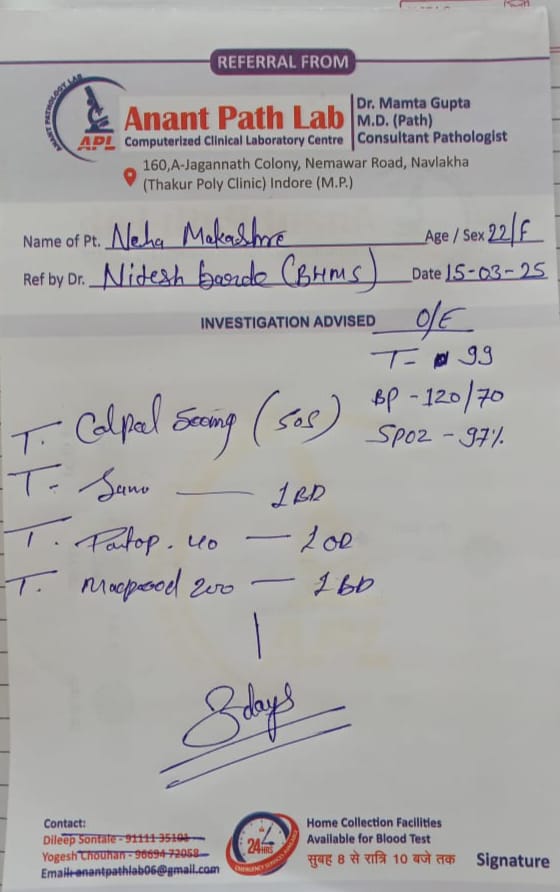 REFERRAL FROM
ANANT PATHOLOGY LAB
APL
Anant Path Lab
Computerized Clinical Laboratory Centre
Dr. Mamta Gupta
M.D. (Path)
Consultant Pathologist
160,A-Jagannath Colony, Nemawar Road, Navlakha
(Thakur Poly Clinic) Indore (M.P.)
Name of Pt. Neha Age / Sex 22/F
Ref by Dr. Nitesh (BHMS) Date 15-03-25
INVESTIGATION ADVISED O/E
T- 99
BP - 120/70
SPO2 - 97%
T. Calpal 500mg (SOS)
T- — 1BD
T. Pantop. 40 — 1 OD
T. 200 — 1 BD
days
Contact:
Dileep Sontale - 91111 35108
Yogesh Chouhan - 96694 72058
Email: anantpathlab06@gmail.com
24 HRS
EMERGENCY SERVICES AVAILABLE
Home Collection Facilities
Available for Blood Test
सुबह 8 से रात्रि 10 बजे तक
Signature